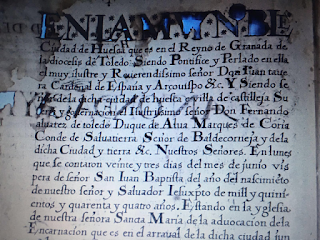 EN LA MUY NOBLE
Ciudad de Huescar que es en el Reyno de Granada de
la diocesis de Toledo Siendo Pontifice y Perlado en ella
el muy ilustre y Reverendisimo señor Don Iuan tauera
Cardenal de España y Arçouispo &c. Y Siendo señor
de la dicha ciudad de huesca y villa de castilleja Su
y gouernacion el Ilustrisimo Señor Don Fernando
aluarez de toledo Duque de Alua Marques de Coria
Conde de Salvatierra Señor de Baldecorneja y de la
dicha Ciudad y tierra &c. Nuestros Señores. En lunes
que se contaron veinte y tres dias del mes de junio vis
pera de señor San Iuan Baptista del año del nascimieto
de nuestro señor y Salvador Iesuxpto de mill y quini
entos y quarenta y quatro años. Estando en la yglesia
de nuestra señora Santa Maria de la aduocacion dela
Encarnacion que es en el arraval de la dicha ciudad